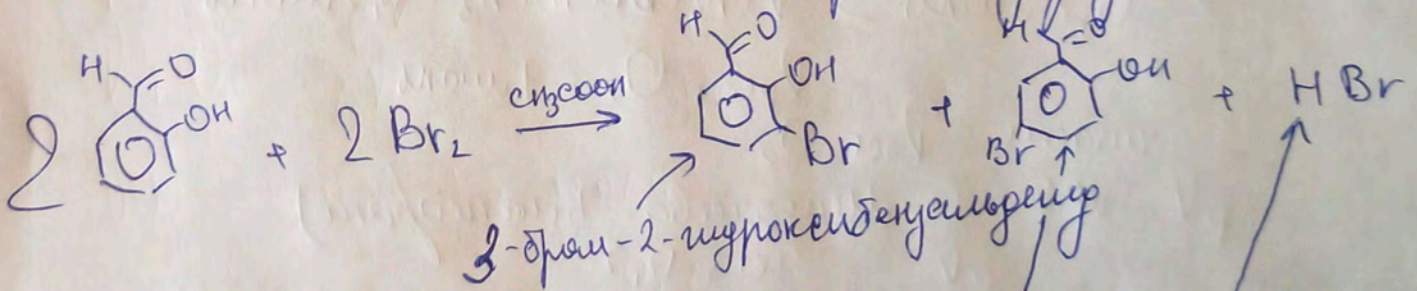 2 H O OH + 2 Br₂ CH3COOH → H O OH Br + H O OH Br + H Br
3-бром-2-гидроксибензальдегид